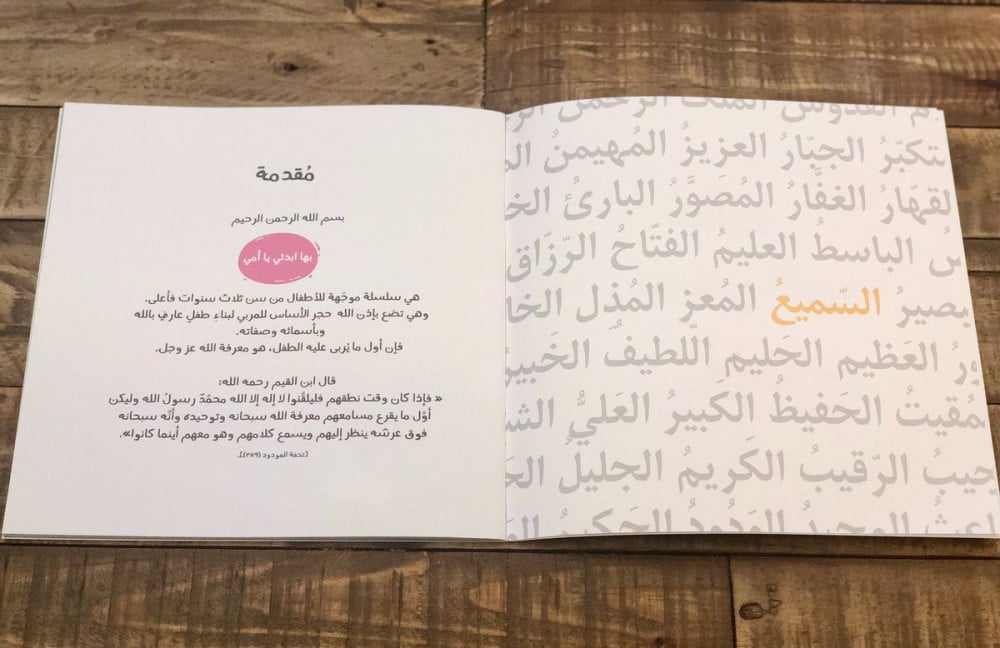 مُقدمة
بسم الله الرحمن الرحيم
بها ابدئي يا أمي
هي سلسلة موجّهة للأطفال من سن ثلاث سنوات فأعلى.
وهي تضع بإذن الله حجر الأساس للمربي لبناء طفلٍ عارفٍ بالله
وبأسمائه وصفاته.
فإن أول ما يُربى عليه الطفل، هو معرفة الله عز وجل.
قال ابن القيم رحمه الله:
« فإذا كان وقت نطقهم فليلقّنوا لا إله إلا الله محمّدٌ رسولُ الله وليكن
أوّل ما يقرع مسامعهم معرفة الله سبحانه وتوحيده وأنّه سبحانه
فوق عرشه ينظر إليهم ويسمع كلامهم وهو معهم أينما كانوا».
[تحفة المودود (٣٨٩)].
القدوس الملك الرحمن
الجبّارُ العزيزُ المُهيمنُ
القهّارُ الغفَّارُ المُصوَّرُ البارئُ
الباسطُ العليمُ الفتّاحُ الرّزّاق
بصيرُ السّميعُ المُعز المُذل
العَظيم الحَليم اللّطيفُ الخَبيرُ
مُقيتُ الحَفيظُ الكَبيرُ العَليُّ
الرّقيبُ الكَريمُ الجليلُ
المجيدُ الوَدُودُ الحَكيمُ